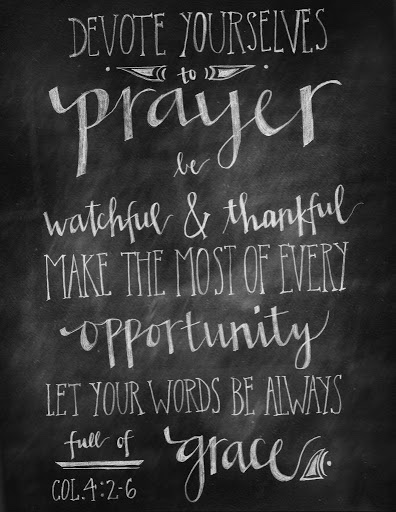 DEVOTE YOURSELVES
to
prayer
be
watchful & thankful
MAKE THE MOST OF EVERY
opportunity
LET YOUR WORDS BE ALWAYS
full of grace
COL.4:2-6